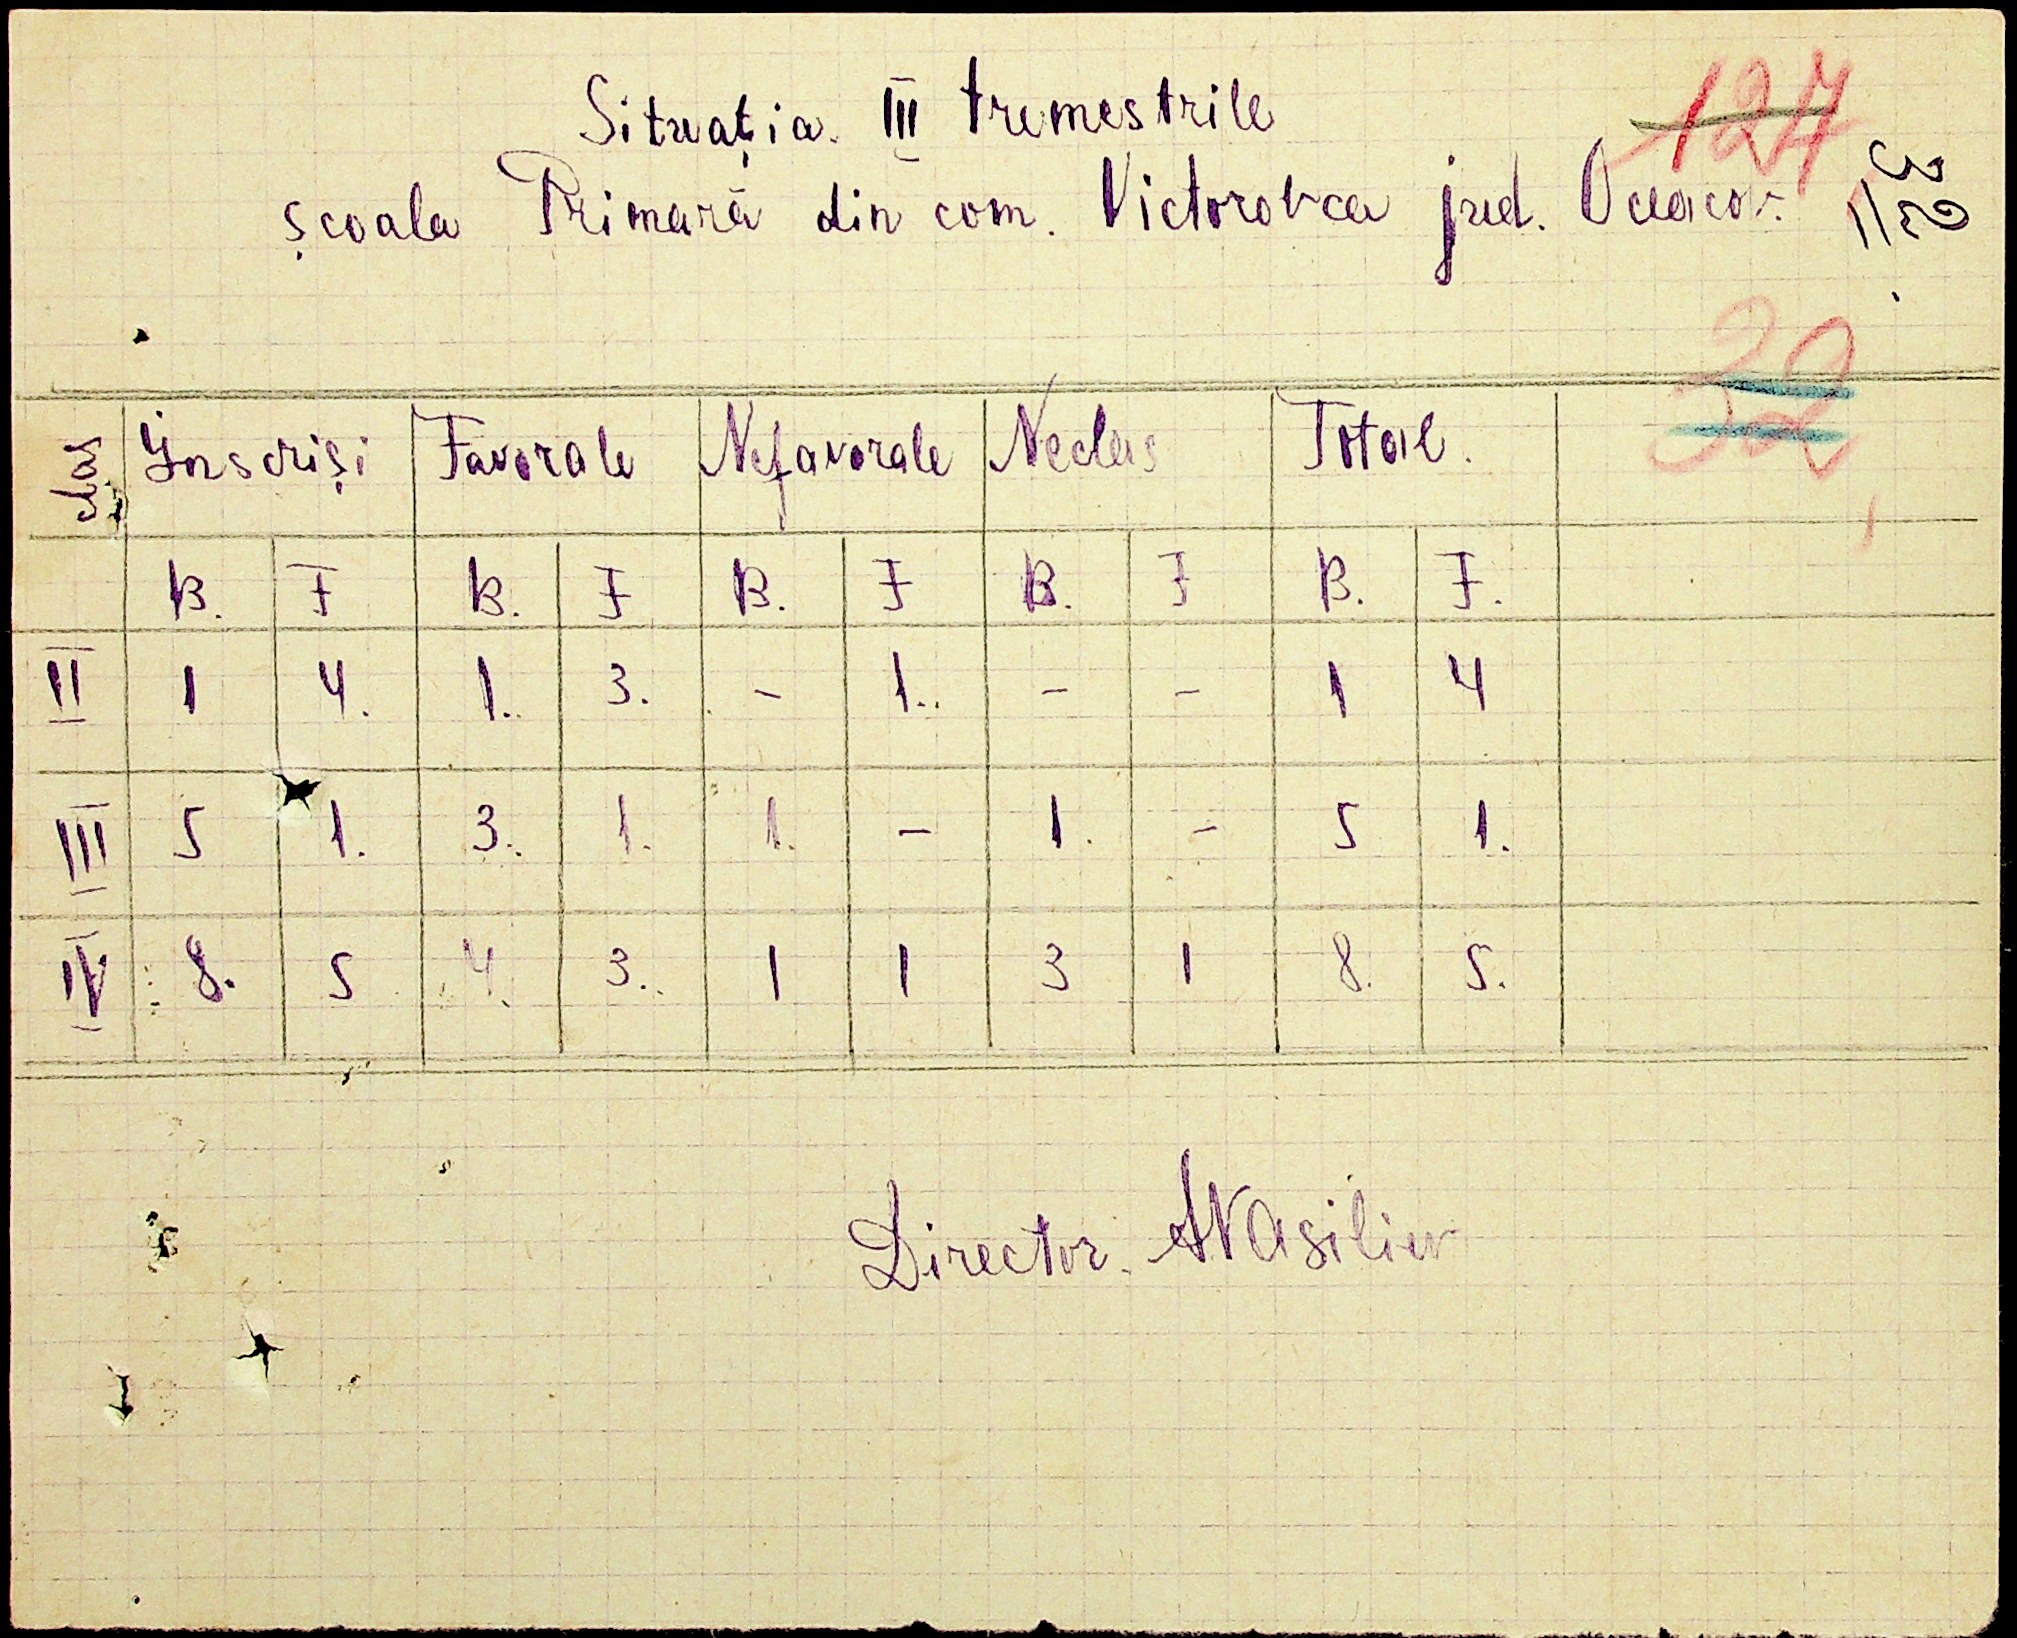 Situația III tremestrile
127
școala Primară din com. Victorovca jud. Oceacov.
32
32
clas Înscriși Favorale Nefavorale Neclas Total.
B. F B. F B. F B. F B. F.
II 1 4. 1. 3. - 1. - - 1 4
III 5 1. 3. 1. 1. - 1. - 5 1.
IV 8. 5 4. 3. 1 1 3 1 8. 5.
Director. AVasiliev